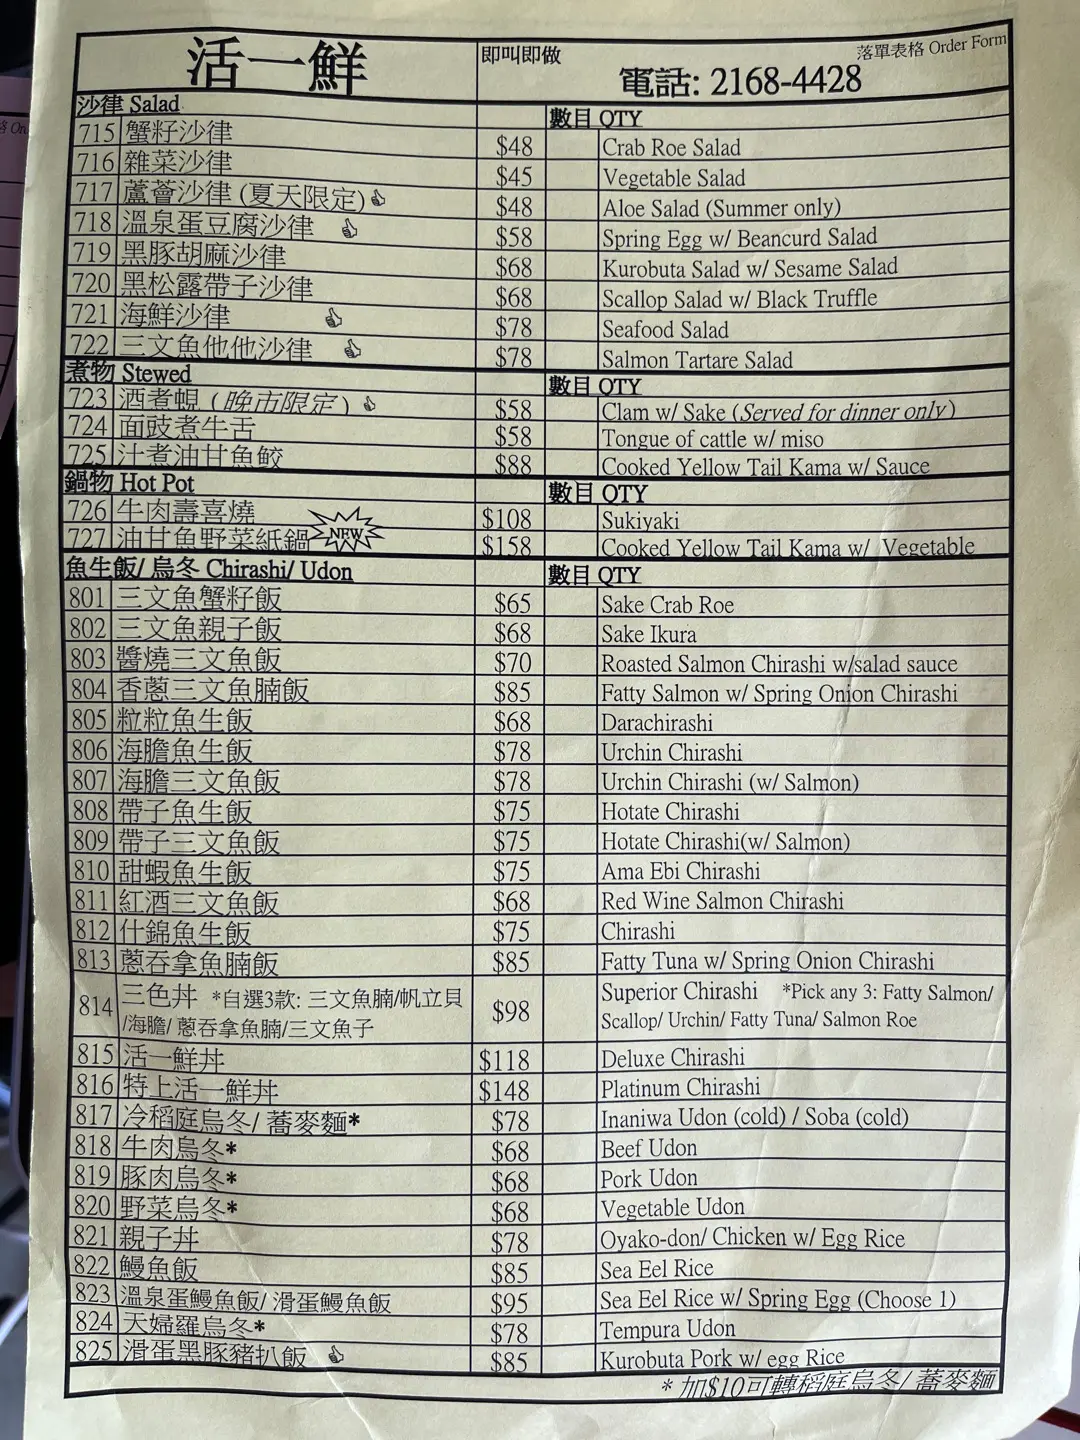 活一鮮 即叫即做 落單表格 Order Form
電話: 2168-4428
沙律 Salad 數目 QTY
715 蟹籽沙律 $48 Crab Roe Salad
716 雜菜沙律 $45 Vegetable Salad
717 蘆薈沙律 (夏天限定) $48 Aloe Salad (Summer only)
718 溫泉蛋豆腐沙律 $58 Spring Egg w/ Beancurd Salad
719 黑豚胡麻沙律 $68 Kurobuta Salad w/ Sesame Salad
720 黑松露帶子沙律 $68 Scallop Salad w/ Black Truffle
721 海鮮沙律 $78 Seafood Salad
722 三文魚他他沙律 $78 Salmon Tartare Salad
煮物 Stewed 數目 QTY
723 酒煮蜆 (晚市限定) $58 Clam w/ Sake (Served for dinner only)
724 面豉煮牛舌 $58 Tongue of cattle w/ miso
725 汁煮油甘魚鮫 $88 Cooked Yellow Tail Kama w/ Sauce
鍋物 Hot Pot 數目 QTY
726 牛肉壽喜燒 $108 Sukiyaki
727 油甘魚野菜紙鍋 NEW $158 Cooked Yellow Tail Kama w/ Vegetable
魚生飯/ 烏冬 Chirashi/ Udon 數目 QTY
801 三文魚蟹籽飯 $65 Sake Crab Roe
802 三文魚親子飯 $68 Sake Ikura
803 醬燒三文魚飯 $70 Roasted Salmon Chirashi w/salad sauce
804 香蔥三文魚腩飯 $85 Fatty Salmon w/ Spring Onion Chirashi
805 粒粒魚生飯 $68 Darachirashi
806 海膽魚生飯 $78 Urchin Chirashi
807 海膽三文魚飯 $78 Urchin Chirashi (w/ Salmon)
808 帶子魚生飯 $75 Hotate Chirashi
809 帶子三文魚飯 $75 Hotate Chirashi(w/ Salmon)
810 甜蝦魚生飯 $75 Ama Ebi Chirashi
811 紅酒三文魚飯 $68 Red Wine Salmon Chirashi
812 什錦魚生飯 $75 Chirashi
813 蔥吞拿魚腩飯 $85 Fatty Tuna w/ Spring Onion Chirashi
814 三色丼 *自選3款: 三文魚腩/帆立貝 $98 Superior Chirashi *Pick any 3: Fatty Salmon/
/海膽/ 蔥吞拿魚腩/三文魚子 Scallop/ Urchin/ Fatty Tuna/ Salmon Roe
815 活一鮮丼 $118 Deluxe Chirashi
816 特上活一鮮丼 $148 Platinum Chirashi
817 冷稻庭烏冬/ 蕎麥麵* $78 Inaniwa Udon (cold) / Soba (cold)
818 牛肉烏冬* $68 Beef Udon
819 豚肉烏冬* $68 Pork Udon
820 野菜烏冬* $68 Vegetable Udon
821 親子丼 $78 Oyako-don/ Chicken w/ Egg Rice
822 鰻魚飯 $85 Sea Eel Rice
823 溫泉蛋鰻魚飯/ 滑蛋鰻魚飯 $95 Sea Eel Rice w/ Spring Egg (Choose 1)
824 天婦羅烏冬* $78 Tempura Udon
825 滑蛋黑豚豬扒飯 $85 Kurobuta Pork w/ egg Rice
* 加$10可轉稻庭烏冬/ 蕎麥麵